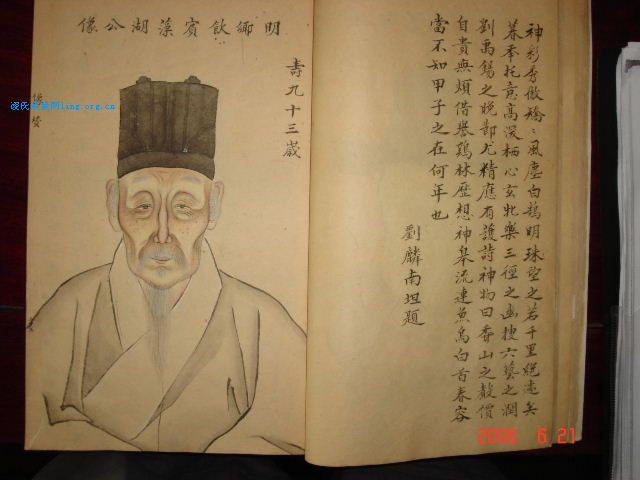 明鄉飲賓藻湖公像
壽九十三歲
ling.org.cn
神彩秀儆矯〻風塵白鵠明珠望之若千里絕迹矣
暮年托意高深栖心玄牝樂三徑之幽搜六藝之潤
劉禹錫之晚郡尤精應有護詩神物曰香山之聲價
自貴無煩借譽鷄林歷想神皋流連魚鳥白首春容
當不知甲子之在何年也
劉麟南坦題
2006 6 21